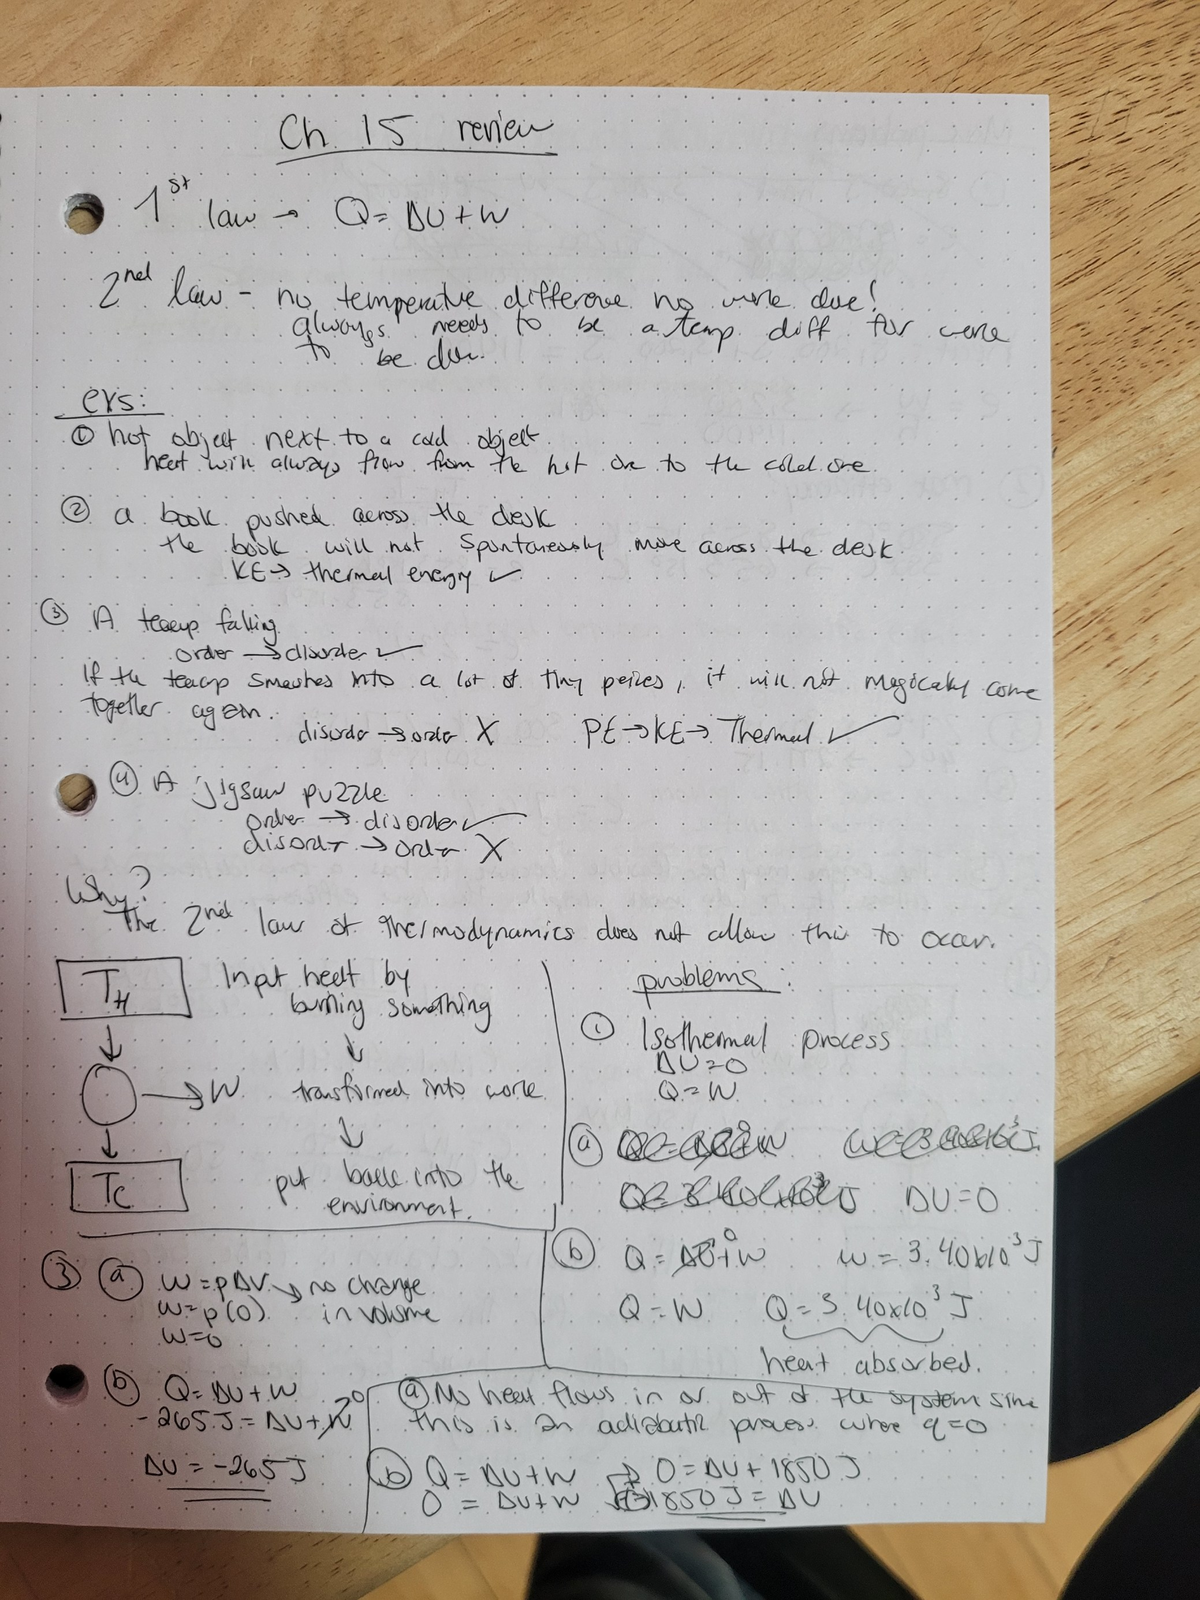 Ch 15 review
1st law → Q = ΔU + W
2nd law - no temperature difference no work done!
always needs to be a temp diff for work
to be done.
exs:
① hot object next to a cold object
heat will always flow from the hot one to the cold one.
② a book pushed across the desk
the book will not spontaneously move across the desk.
KE → thermal energy ✓
③ A teacup falling
order → disorder ✓
If the teacup smashes into a lot of tiny peizes, it will not magically come
together again.
disorder → order X PE → KE → Thermal ✓
④ A jigsaw puzzle
order → disorder ✓
disorder → order X
Why?
The 2nd law of thermodynamics does not allow this to occur.
TH
Input heat by
burning something
↓
→ W transformed into work
↓
TC
put back into the
environment.
problems:
① Isothermal process
ΔU = 0
Q = W
ⓐ
ΔU = 0
ⓑ Q = ΔU⁰ + W W = 3.40x10³ J
Q = W Q = 3.40x10³ J
heat absorbed.
③ ⓐ W = pΔV → no change
W = p(0) in volume
W = 0
ⓑ Q = ΔU + W
-265 J = ΔU + W⁰
ΔU = -265 J
ⓐ No heat flows in or out of the system since
this is an adiabatic process where q = 0
ⓑ Q = ΔU + W → 0 = ΔU + 1850 J
0 = ΔU + W (-)1850 J = ΔU